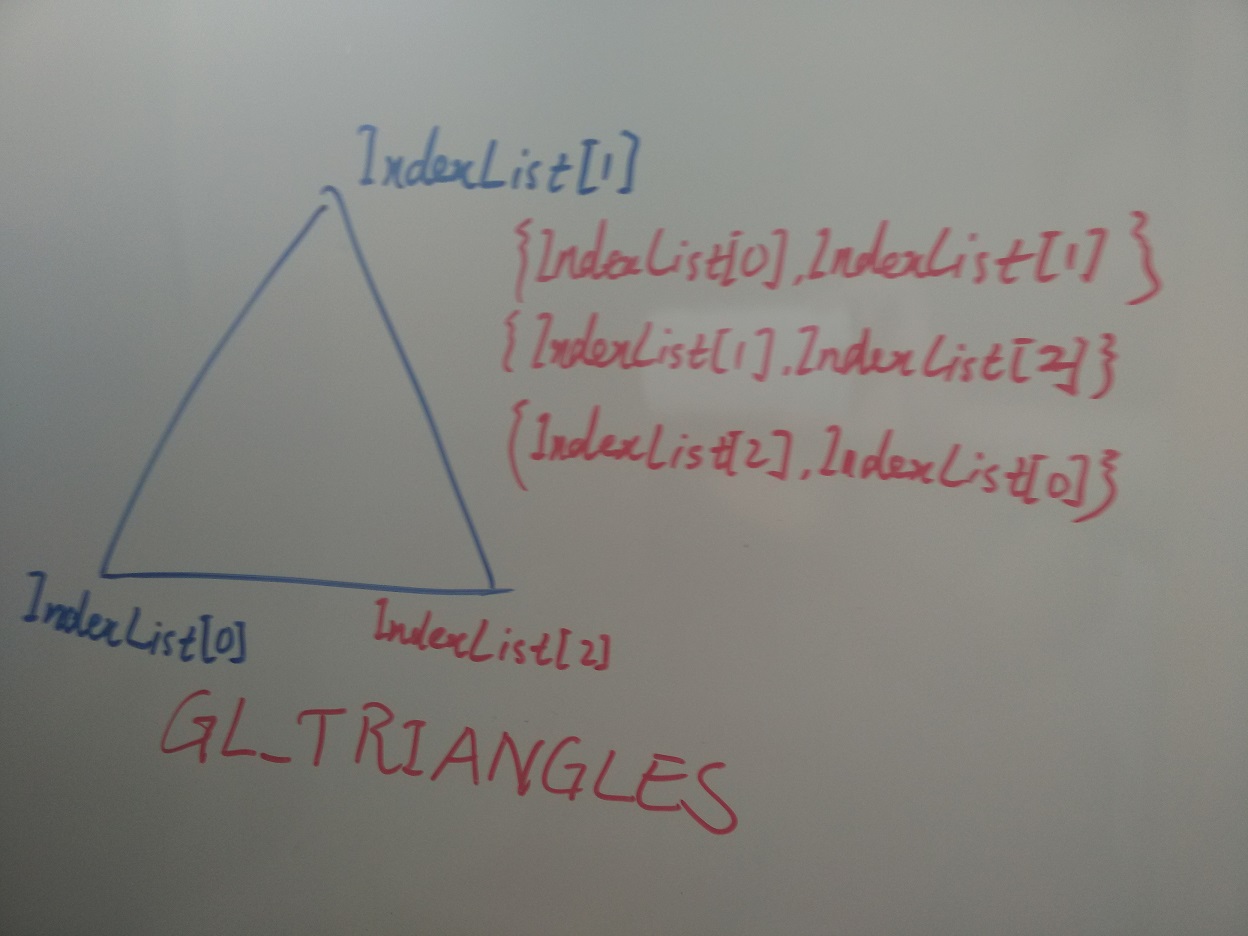 IndexList[1]
{IndexList[0],IndexList[1]}
{IndexList[1],IndexList[2]}
{IndexList[2],IndexList[0]}
IndexList[0]
IndexList[2]
GL_TRIANGLES